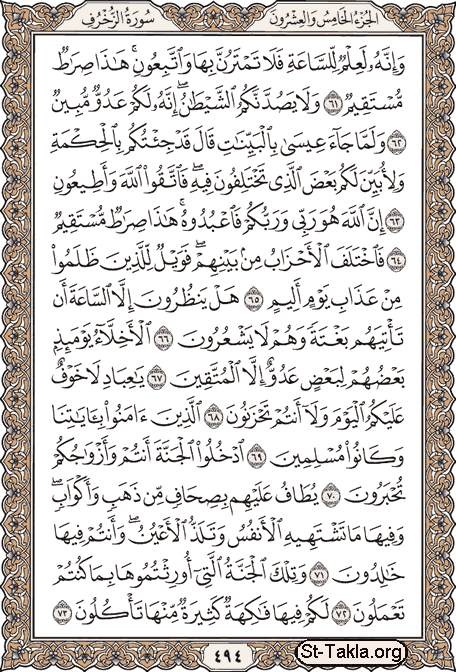 الجزء الخامس والعشرون سورة الزخرف
وَإِنَّهُۥ لَعِلْمٌ لِّلسَّاعَةِ فَلَا تَمْتَرُنَّ بِهَا وَٱتَّبِعُونِ ۚ هَٰذَا صِرَٰطٌ
مُّسْتَقِيمٌ ٦١ وَلَا يَصُدَّنَّكُمُ ٱلشَّيْطَٰنُ ۖ إِنَّهُۥ لَكُمْ عَدُوٌّ مُّبِينٌ
٦٢ وَلَمَّا جَآءَ عِيسَىٰ بِٱلْبَيِّنَٰتِ قَالَ قَدْ جِئْتُكُم بِٱلْحِكْمَةِ
وَلِأُبَيِّنَ لَكُم بَعْضَ ٱلَّذِى تَخْتَلِفُونَ فِيهِ ۖ فَٱتَّقُوا۟ ٱللَّهَ وَأَطِيعُونِ
٦٣ إِنَّ ٱللَّهَ هُوَ رَبِّى وَرَبُّكُمْ فَٱعْبُدُوهُ ۚ هَٰذَا صِرَٰطٌ مُّسْتَقِيمٌ
٦٤ فَٱخْتَلَفَ ٱلْأَحْزَابُ مِنۢ بَيْنِهِمْ ۖ فَوَيْلٌ لِّلَّذِينَ ظَلَمُوا۟
مِنْ عَذَابِ يَوْمٍ أَلِيمٍ ٦٥ هَلْ يَنظُرُونَ إِلَّا ٱلسَّاعَةَ أَن
تَأْتِيَهُم بَغْتَةً وَهُمْ لَا يَشْعُرُونَ ٦٦ ٱلْأَخِلَّآءُ يَوْمَئِذٍۭ
بَعْضُهُمْ لِبَعْضٍ عَدُوٌّ إِلَّا ٱلْمُتَّقِينَ ٦٧ يَٰعِبَادِ لَا خَوْفٌ
عَلَيْكُمُ ٱلْيَوْمَ وَلَآ أَنتُمْ تَحْزَنُونَ ٦٨ ٱلَّذِينَ ءَامَنُوا۟ بِـَٔايَٰتِنَا
وَكَانُوا۟ مُسْلِمِينَ ٦٩ ٱدْخُلُوا۟ ٱلْجَنَّةَ أَنتُمْ وَأَزْوَٰجُكُمْ
تُحْبَرُونَ ٧٠ يُطَافُ عَلَيْهِم بِصِحَافٍ مِّن ذَهَبٍ وَأَكْوَابٍ ۖ
وَفِيهَا مَا تَشْتَهِيهِ ٱلْأَنفُسُ وَتَلَذُّ ٱلْأَعْيُنُ ۖ وَأَنتُمْ فِيهَا
خَٰلِدُونَ ٧١ وَتِلْكَ ٱلْجَنَّةُ ٱلَّتِىٓ أُورِثْتُمُوهَا بِمَا كُنتُمْ
تَعْمَلُونَ ٧٢ لَكُمْ فِيهَا فَٰكِهَةٌ كَثِيرَةٌ مِّنْهَا تَأْكُلُونَ ٧٣
٤٩٤
St-Takla.org